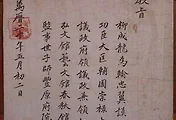 敎旨
柳成龍爲輸忠翼謨
功臣大匡輔國崇祿
議政府領議政兼領
弘文館藝文館春秋館
監事世子師豐原府院
萬曆 年五月初二